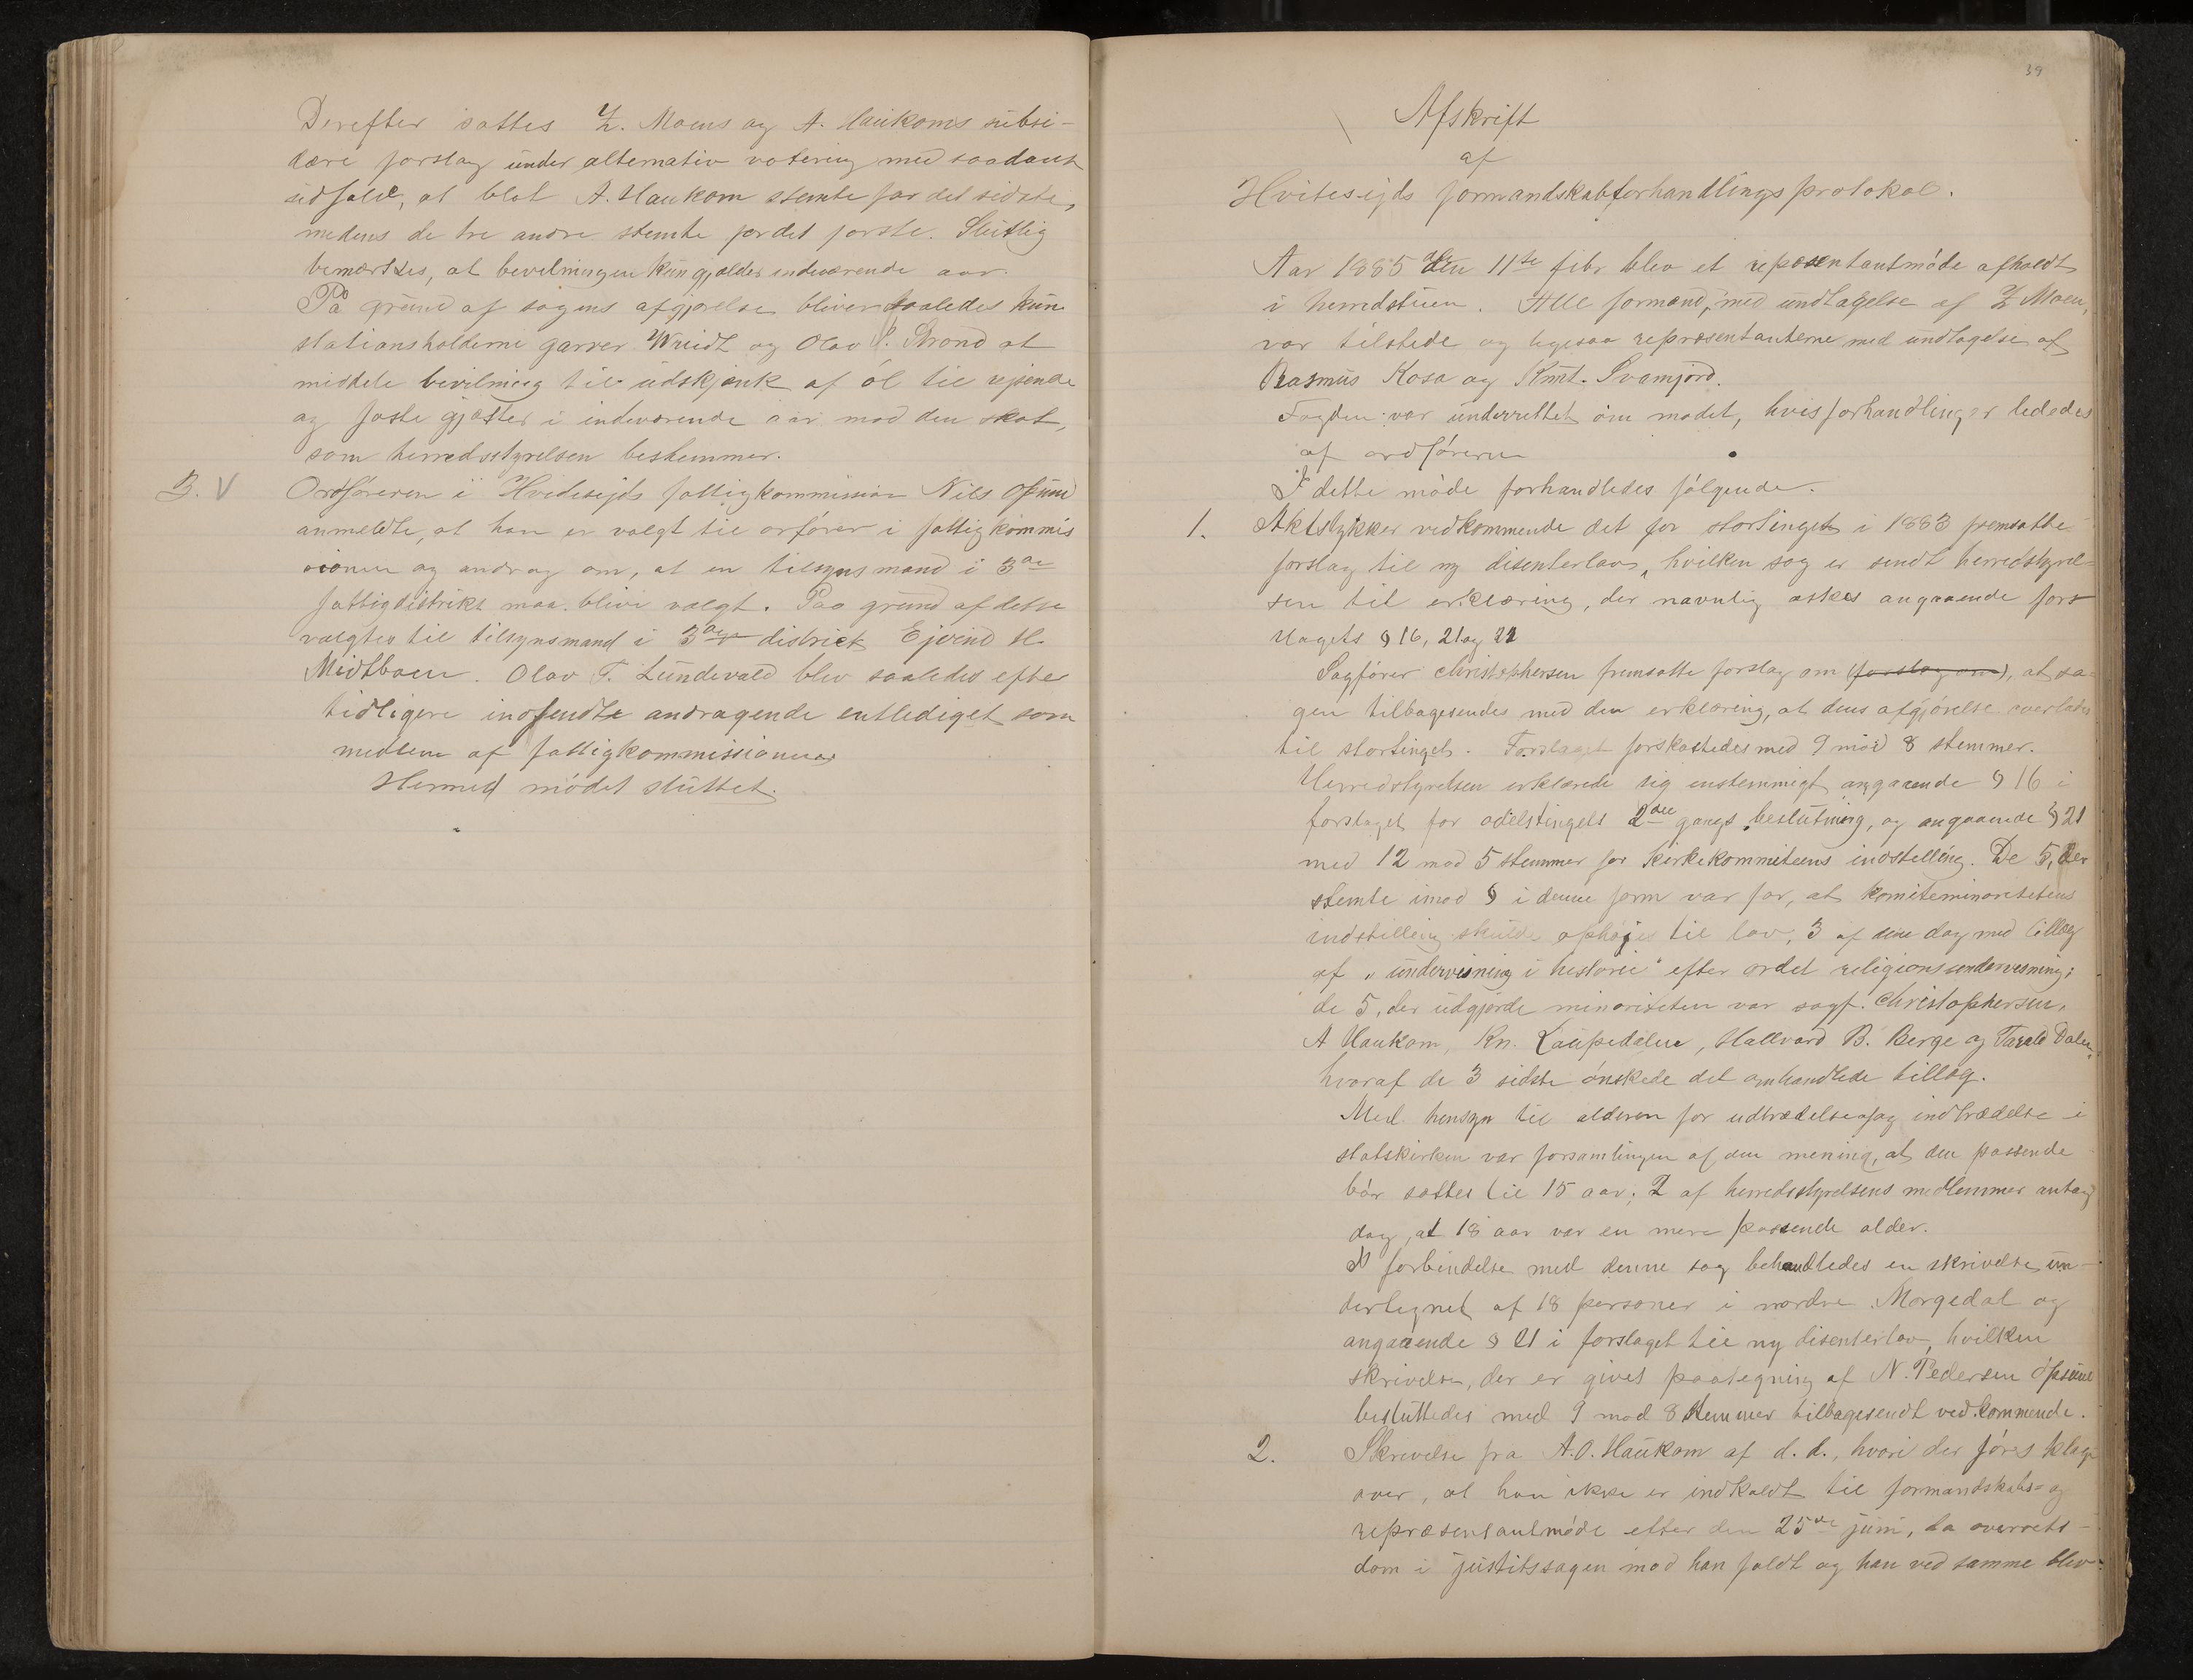 Derefter sattes Z. Moens og A. Haukoms subsi-
dære forslag under alternativ votering med saadant
udfald, at blot A. Haukom stemte for det sidste,
medens de tre andre stemte for det første. Slutlig
bemærkes, at bevilningen kun gjælder indeværende aar.
På grund af sagens afgjørelse bliver saaledes kun
stationsholderne garver Wriedt og Olav S. Strond at
middele bevilning til udskjænk af øl til rejsende
og faste gjæster i indeværende aar mod den skat,
som herredsstyrelsen bestemmer.
3. V Ordføreren i Hvidesejds fattigkommission Nils Ofsund
anmeldte, at han er valgt til orfører i fattigkommis
sionen og androg om, at en tilsynsmand i 3die
fattigdistrikt maa blive valgt. Paa grund af dette
valgtes til tilsynsmand i 3die district Ejvind H.
Midtboen. Olav T. Lundevald blev saaledes efter
tidligere indsendte andragende entlediget som
medlem af fattigkommissionen
Hermed mødet sluttet.
39
Afskrift
af
Hvitesejds formandskabforhandlingsprotokol.
Aar 1885 den 11te febr blev et repræsentantmøde afholdt
i herredstuen. Alle formænd, med undtagelse af Z Moen,
var tilstede og ligesaa repræsentanterne med undtagelse af
Rasmus Kosa og Knut. Svamjord.
Fogden var underrettet om mødet, hvis forhandlinger lededes
af ordføreren
I dette møde forhandledes følgende.
1. Aktstykker vedkommende det for stortinget i 1883 fremsatte
forslag til ny disenterlov, hvilken sag er sendt herredstyrel-
sen til erklæring, der navnlig æskes angaaende fors
slagets § 16, 21 og 22
Sagfører Christophersen fremsatte forslag om (forslag om), at sa-
gen tilbagesendes med den erklæring, at dens afgjørelse overlades
til stortinget. Forslaget forkastedes med 9 mod 8 stemmer.
Herredstyrelsen erklærede sig enstemmigt angaaende § 16 i
forslaget for odelstingets 2den gangs beslutning, og angaaende § 21
med 12 mod 5 stemmer for kirkekommiteens indstelling. De 5, der
stemte imod § i denne form var for, at komiteminoritetens
indstilling skulde ophøjes til lov, 3 af dem dog med tillæg
af "undervisning i historie" efter ordet religionsundervisning;
de 5, der udgjorde minoriteten var sagf. Christophersen,
A Haukom, Kn. Laupedalen, Hallvard B. Berge og Tarald Dalen,
hvoraf de 3 sidste ønskede det omhandlede tillæg.
Med hensyn til alderen for udtrædelse af og indtrædelse i
statskirken var forsamlingen af den mening, at den passende
bør sættes til 15 aar; 2 af herredsstyrelsens medlemmer antog
dog, at 18 aar var en mere passende alder.
I forbindelse med denne sag behandledes en skrivelse un-
dertegnet af 18 personer i nordre Morgedal og
angaaende § 21 i forslaget til ny disenterlov, hvilken
skrivelse, der er givet paategning af N. Pedersen Ofsund
besluttedes med 9 mod 8 stemmer tilbagesendt vedkommende.
2. Skrivelse fra A.O. Haukom af d. d., hvori der føres klage
over, at han ikke er indkaldt til formandskabs- og
repræsentantmøde efter den 25de juni, da overrets-
dom i justitssagen mod han faldt og han ved samme blev